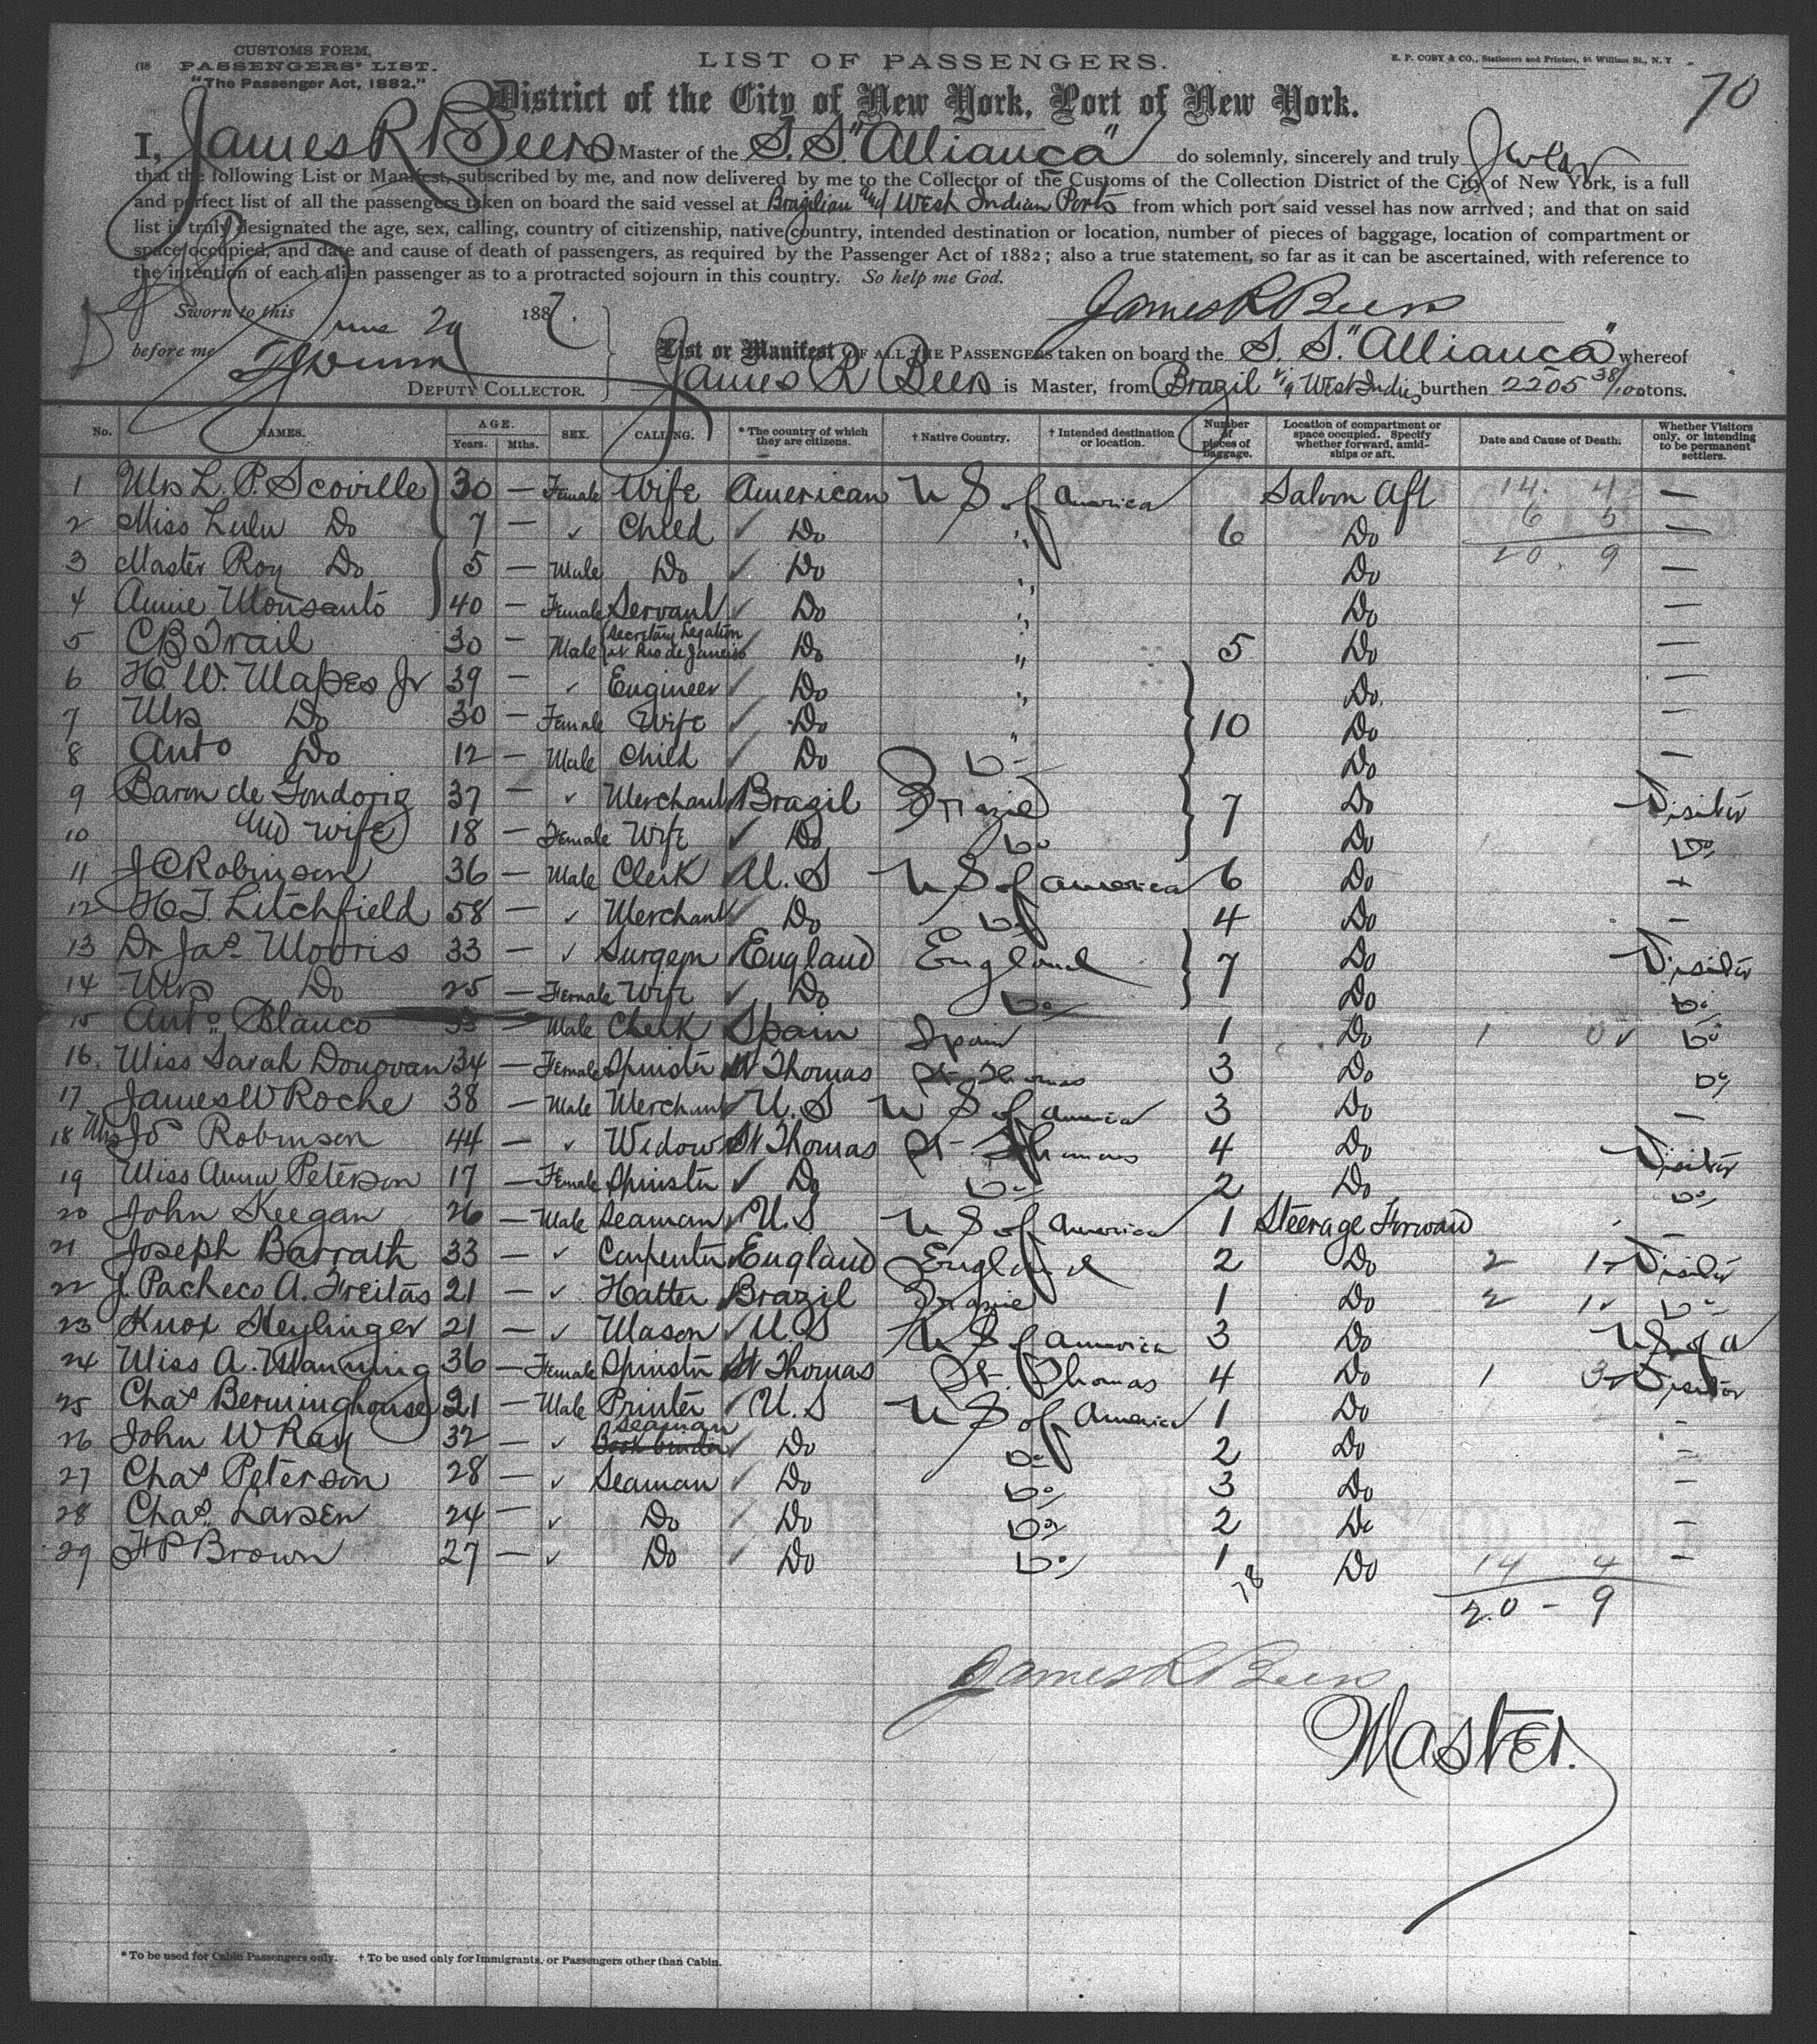 CUSTOMS FORM,
PASSENGERS' LIST.
"The Passenger Act, 1882."
LIST OF PASSENGERS.
E. P. COBY & CO., Stationers and Printers, 94 William St., N. Y
70
District of the City of New York, Port of New York.
I, James R Beers Master of the S. S. "Allianca" do solemnly, sincerely and truly Swear
that the following List or Manifest, subscribed by me, and now delivered by me to the Collector of the Customs of the Collection District of the City of New York, is a full
and perfect list of all the passengers taken on board the said vessel at Brazilian and West Indian Ports from which port said vessel has now arrived; and that on said
list is truly designated the age, sex, calling, country of citizenship, native country, intended destination or location, number of pieces of baggage, location of compartment or
space occupied, and date and cause of death of passengers, as required by the Passenger Act of 1882; also a true statement, so far as it can be ascertained, with reference to
the intention of each alien passenger as to a protracted sojourn in this country. So help me God.
Sworn to this June 29 1887.
James R Beers
before me
DEPUTY COLLECTOR.
List or Manifest OF ALL THE PASSENGERS taken on board the S. S. "Allianca" whereof
James R Beers is Master, from Brazil via West Indies burthen 2205 38/100 tons.
No. NAMES. AGE. Years. Mths. SEX. CALLING. * The country of which they are citizens. † Native Country. † Intended destination or location. Number of pieces of baggage. Location of compartment or space occupied. Specify whether forward, amidships or aft. Date and Cause of Death. Whether Visitors only, or intending to be permanent settlers.
1 Mrs L. P. Scoville 30 — Female Wife American U S of America Saloon Aft 14. 4 —
2 Miss Lulu Do 7 — ✓ Child ✓ Do " 6 Do 6 5 —
3 Master Roy Do 5 — Male Do ✓ Do " Do 20. 9 —
4 Annie Monsanto 40 — Female Servant ✓ Do " Do —
5 C B Trail 30 — Male (Secretary Legation at Rio de Janeiro ✓ Do " 5 Do —
6 H. W. Mapes Jr 39 — ✓ Engineer ✓ Do " Do. —
7 Mrs Do 30 — Female Wife ✓ Do " 10 Do —
8 Anto Do 12 — Male Child ✓ Do Do Do —
9 Baron de Gondoriz 37 — ✓ Merchant Brazil Brazil 7 Do Visitor
10 and wife 18 — Female Wife ✓ Do Do Do Do
11 J C Robinson 36 — Male Clerk U. S U S of America 6 Do —
12 H. T. Litchfield 58 — ✓ Merchant ✓ Do Do 4 Do —
13 Dr Jas Morris 33 — ✓ Surgeon England England 7 Do Visitor
14 Mrs Do 25 — Female Wife ✓ Do Do Do Do
15 Anto Blanco 33 — Male Clerk Spain Spain 1 Do 1 0 ✓ Do
16. Miss Sarah Donovan 34 — Female Spinster St Thomas St Thomas 3 Do Do
17 James W Roche 38 — Male Merchant ✓ U. S U S of America 3 Do —
18 Mrs Jo Robinson 44 — ✓ Widow St Thomas St Thomas 4 Do Visitor
19 Miss Anna Peterson 17 — Female Spinster ✓ Do Do 2 Do Do
20 John Keegan 26 — Male Seaman ✓ U. S U S of America 1 Steerage Forward —
21 Joseph Barrath 33 — ✓ Carpenter England England 2 Do 2 1 ✓ Visitor
22 J. Pacheco A. Freitas 21 — ✓ Hatter Brazil Brazil 1 Do 2 1 ✓ Do
23 Knox Heylinger 21 — ✓ Mason ✓ U. S U S of America 3 Do U S of A
24 Miss A. Manning 36 — Female Spinster St Thomas St. Thomas 4 Do 1 3 ✓ Visitor
25 Chas Berminghouse 21 — Male Printer ✓ U. S U S of America 1 Do —
26 John W Ray 32 — ✓ Seaman Book binder ✓ Do Do 2 Do —
27 Chas Peterson 28 — ✓ Seaman ✓ Do Do 3 Do —
28 Chas. Larsen 24 — ✓ Do ✓ Do Do 2 Do —
29 H P Brown 27 — ✓ Do ✓ Do Do 1 Do 14 4 —
78
20 - 9
James R Beers
Master.
* To be used for Cabin Passengers only. † To be used only for Immigrants, or Passengers other than Cabin.